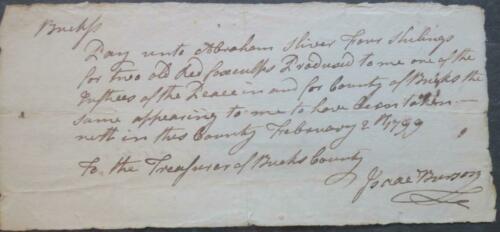 Bucks ss
Pay unto Abraham Sliver Four Shilings
for two old Red foxculps Prodused to me one of the
Justices of the Peace in and for County of Bucks the
same appearing to me to have been taken
in this County February 2th 1799
To the Treasurer of Bucks County
Isaac Burson